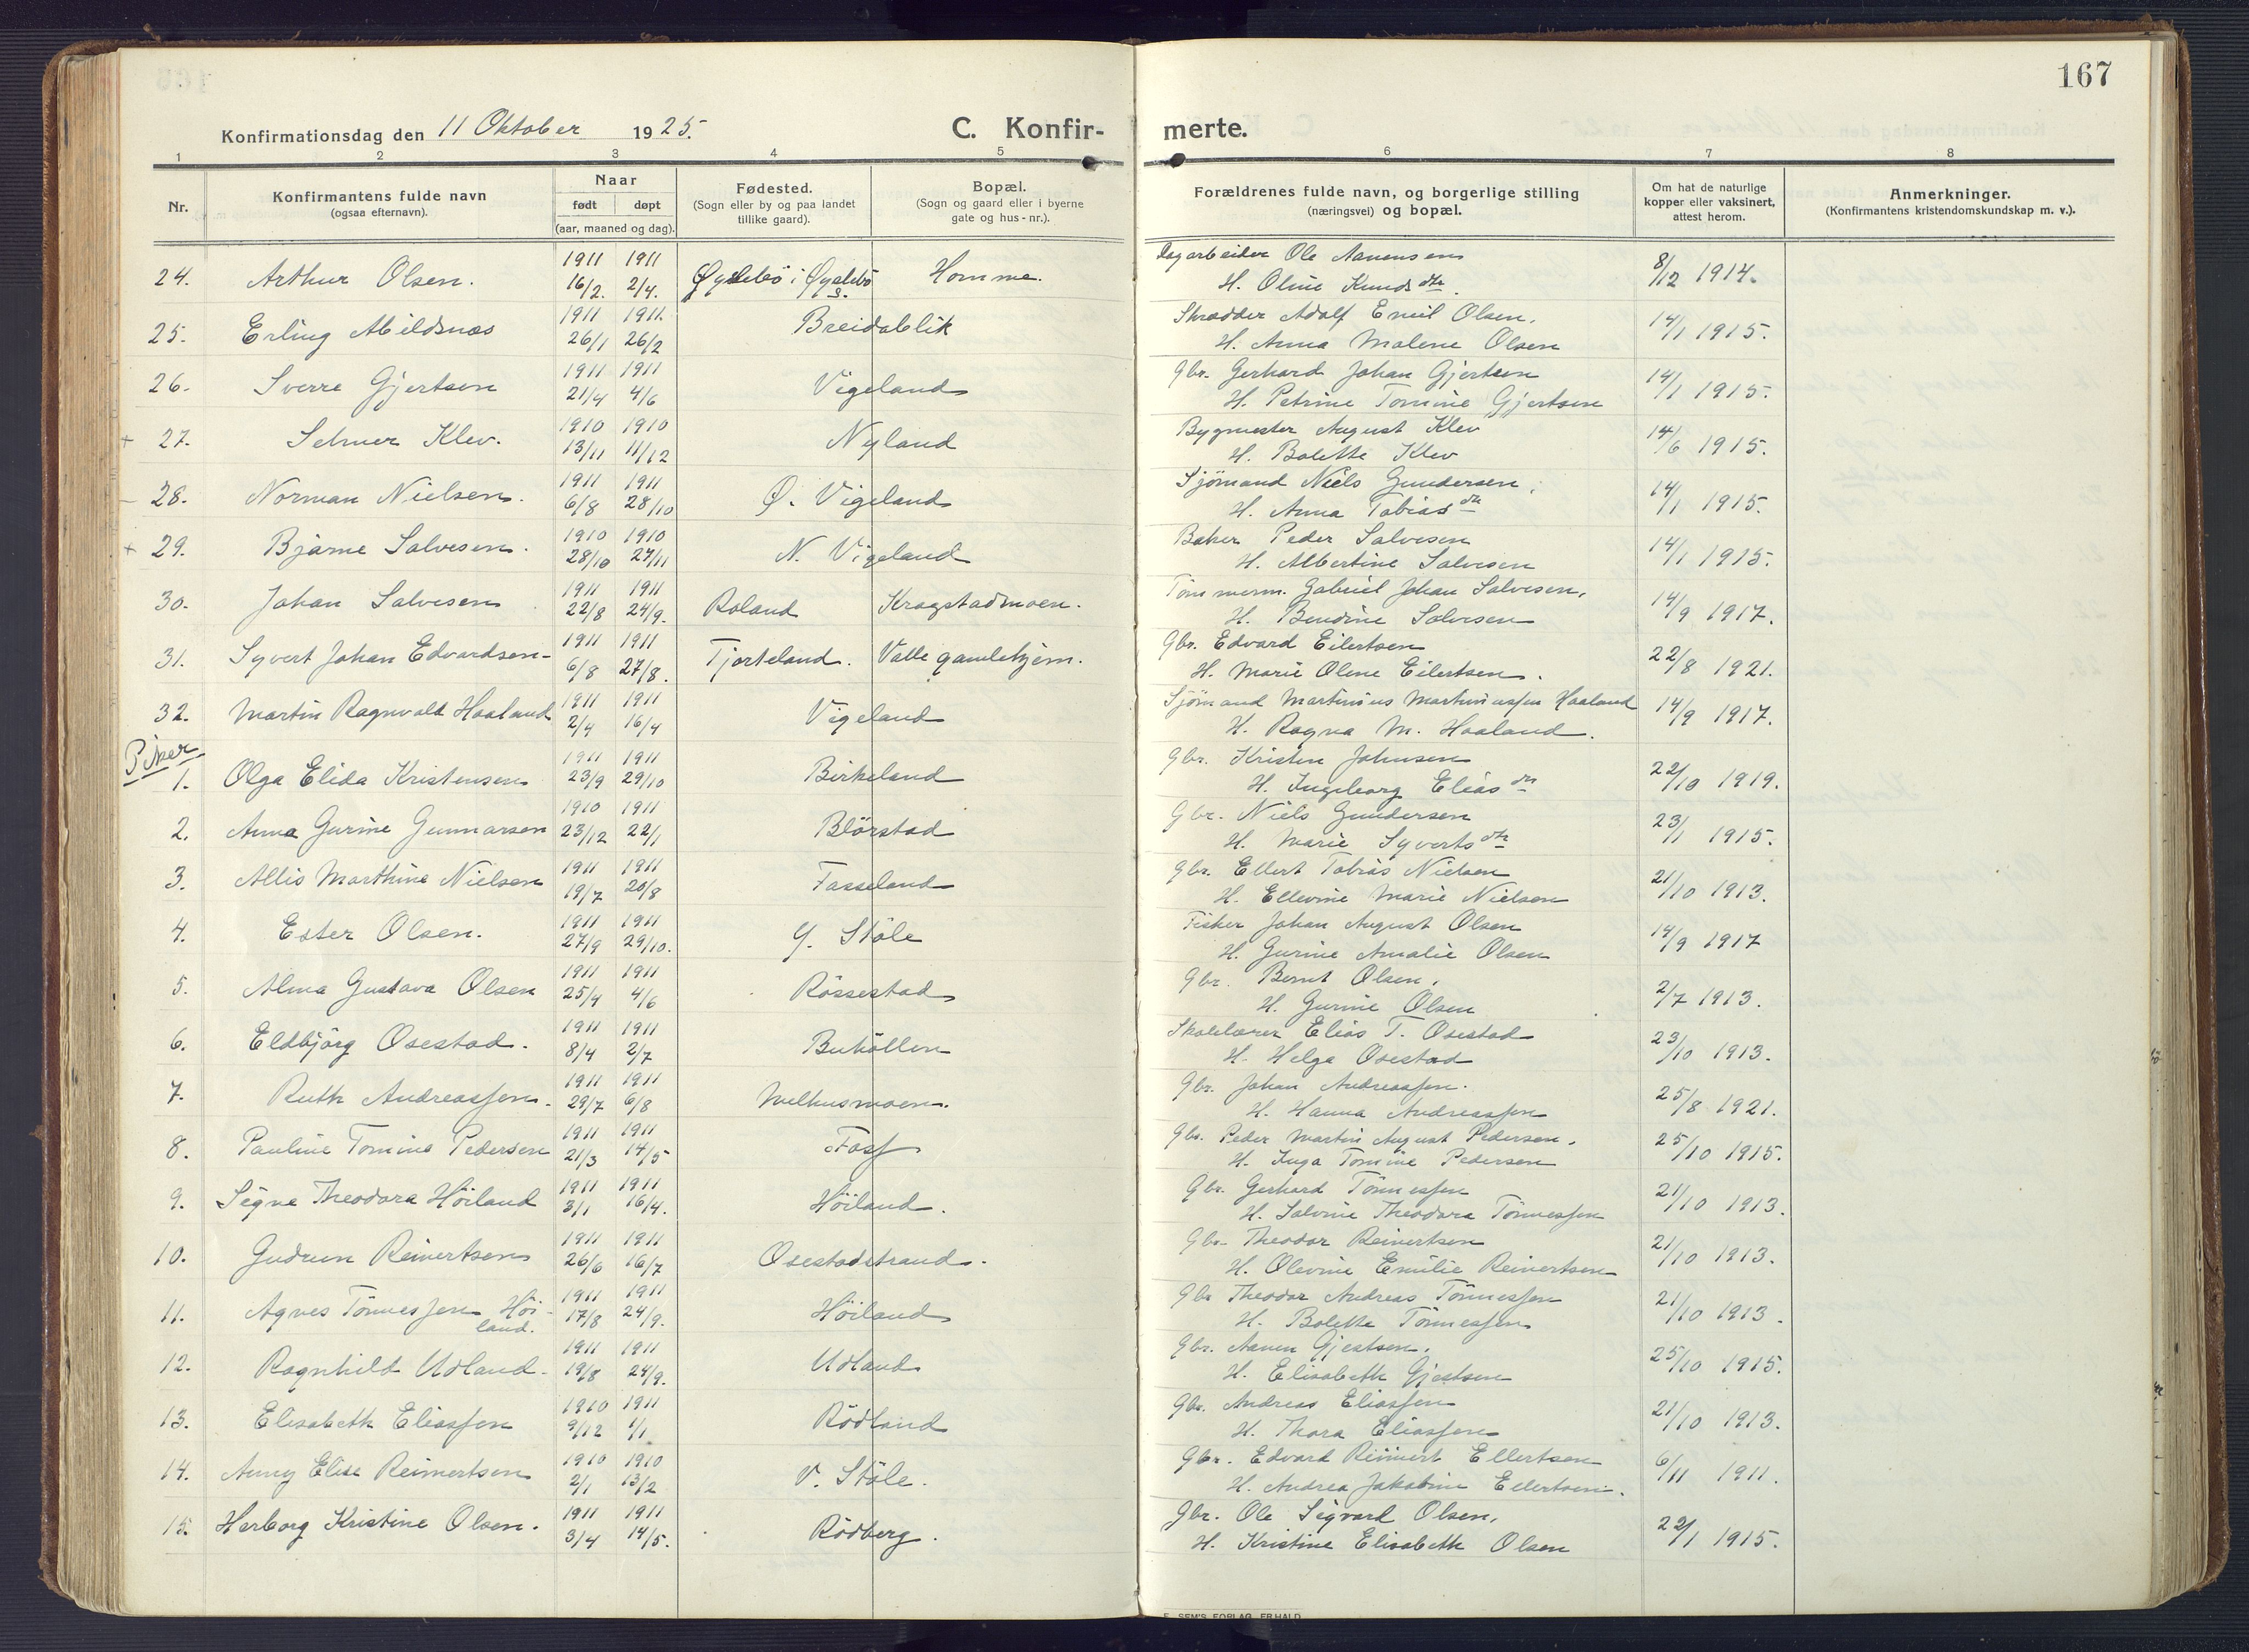 167
Konfirmationsdag den 11 Oktober 1925.
C. Konfir- merte.
1 2 3 4 5 6 7 8
Nr.
Konfirmantens fulde navn
(ogsaa efternavn).
Naar
født døpt
(aar, maaned og dag).
Fødested.
(Sogn eller by og paa landet
tillike gaard).
Bopæl.
(Sogn og gaard eller i byerne
gate og hus-nr.).
Forældrenes fulde navn, og borgerlige stilling
(næringsvei) og bopæl.
Om hat de naturlige
kopper eller vaksinert,
attest herom.
Anmerkninger.
(Konfirmantens kristendomskundskap m. v.).
1911 1911 Dagarbeider Ole Aanensen
24. Arthur Olsen. 16/2. 2/4. Øyslebö i Øyslebö s. Homme. H. Oline Knudsdtr. 8/12 1914.
1911 1911 Skrædder Adolf Emil Olsen,
25. Erling Abildsnæs 26/1 26/2 Breidablik H. Anna Malene Olsen 14/1 1915.
1911 1911 Gbr. Gerhard Johan Gjertsen
26. Sverre Gjertsen 21/4 4/6 Vigeland H. Petrine Tomine Gjertsen 14/1 1915.
1910 1910 Bygmester August Klev
+ 27. Selmer Klev. 13/11 11/12 Nyland H. Bolette Klev 14/6 1915.
1911 1911 Sjömand Niels Gundersen,
- 28. Norman Nielsen. 6/8 28/10 Ø. Vigeland H. Anna Tobiasdtr 14/1 1915.
1910 1910 Baker Peder Salvesen
+ 29. Bjarne Salvesen. 28/10 27/11 N. Vigeland H. Albertine Salvesen 14/1 1915.
1911 1911 Tömmerm. Gabriel Johan Salvesen,
30. Johan Salvesen 22/8 24/9. Roland Kragstadmoen. H. Bendine Salvesen 14/9 1917.
1911 1911 Gbr. Edvard Eilertsen
31. Syvert Johan Edvardsen 6/8 27/8. Tjorteland. Valle gamlehjem. H. Marie Oline Eilertsen. 22/8 1921.
1911 1911 Sjömand Martinius Martiniussen Haaland
32. Martin Ragnvald Haaland 2/4 16/4 Vigeland H. Ragna M. Haaland. 14/9 1917.
Piker
1911 1911 Gbr. Kristen Johnsen
1. Olga Elida Kristensen 23/9 29/10 Birkeland H. Ingeborg Eliasdtr 22/10 1919.
1910 1911 Gbr. Niels Gundersen
2. Anna Gurine Gunnarsen 23/12 22/1 Blörstad H. Marie Syvertsdtr 23/1 1915.
1911 1911 Gbr. Ellert Tobias Nielsen
3. Allis Marthine Nielsen 19/7 20/8 Fasseland H. Ellevine Marie Nielsen 21/10 1913.
1911 1911 Fisker Johan August Olsen
4. Ester Olsen. 27/9 29/10. Y. Støle H. Gurine Amalie Olsen 14/9 1917
1911 1911 Gbr. Bernt Olsen,
5. Alma Gustava Olsen 25/4 4/6 Rössestad H. Gurine Olsen 2/7 1913.
1911 1911 Skolelærer Elias T. Osestad
6. Eldbjörg Osestad. 8/4 2/7 Buhöllen H. Helga Osestad 23/10 1913.
1911 1911 Gbr. Johan Andreassen.
7. Ruth Andreassen. 29/7 6/8 Melhusmoen. H. Hanna Andreassen 25/8 1921.
1911 1911 Gbr. Peder Martin August Pedersen.
8. Pauline Tomine Pedersen 21/3 14/5 Foss H. Inga Tomine Pedersen 25/10 1915.
1911 1911 Gbr. Gerhard Tönnessen
9. Signe Theodora Höiland 3/1 16/4. Höiland. H. Salvine Theodora Tönnessen 21/10 1913.
1911 1911 Gbr. Theodor Reinertsen
10. Gudrun Reinertsen 26/6 16/7 Osestadstrand. H. Olevine Emilie Reinertsen 21/10 1913.
1911 1911 Gbr Theodor Andreas Tönnessen
11. Agnes Tönnessen Höi-
land. 17/8 24/9. Höiland H. Bolette Tönnessen 21/10 1913.
1911 1911 Gbr. Aanen Gjestsen.
12. Ragnhild Udland. 19/8 24/9. Udland H. Elisabeth Gjestsen 25/10 1915.
1910 1911 Gbr. Andreas Eliassen
13. Elisabeth Eliassen 9/12 1/1 Rödland H. Thora Eliassen 21/10 1913.
1910 1910 Gbr. Edvard Reinert Ellertsen
14. Anny Elise Reinertsen 2/1 13/2 V. Støle. H. Andrea Jakobine Eilertsen. 6/11 1911.
1911 1911 Gbr. Ole Sigvard Olsen,
15. Herborg Kristine Olsen. 3/4 14/5. Rödberg. H. Kristine Elisabeth Olsen 22/1 1915.